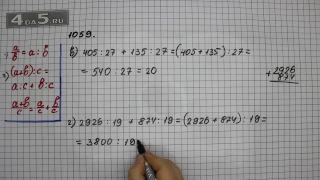 4DS5.RU
1059.
a/b = a : b
(a+b):c =
a:c + b:c
a+b/c = a/c + b/c
в) 405:27 + 135:27 = (405+135):27 =
= 540:27 = 20
+ 2926
874
г) 2926:19 + 874:19 = (2926+874):19 =
= 3800:19